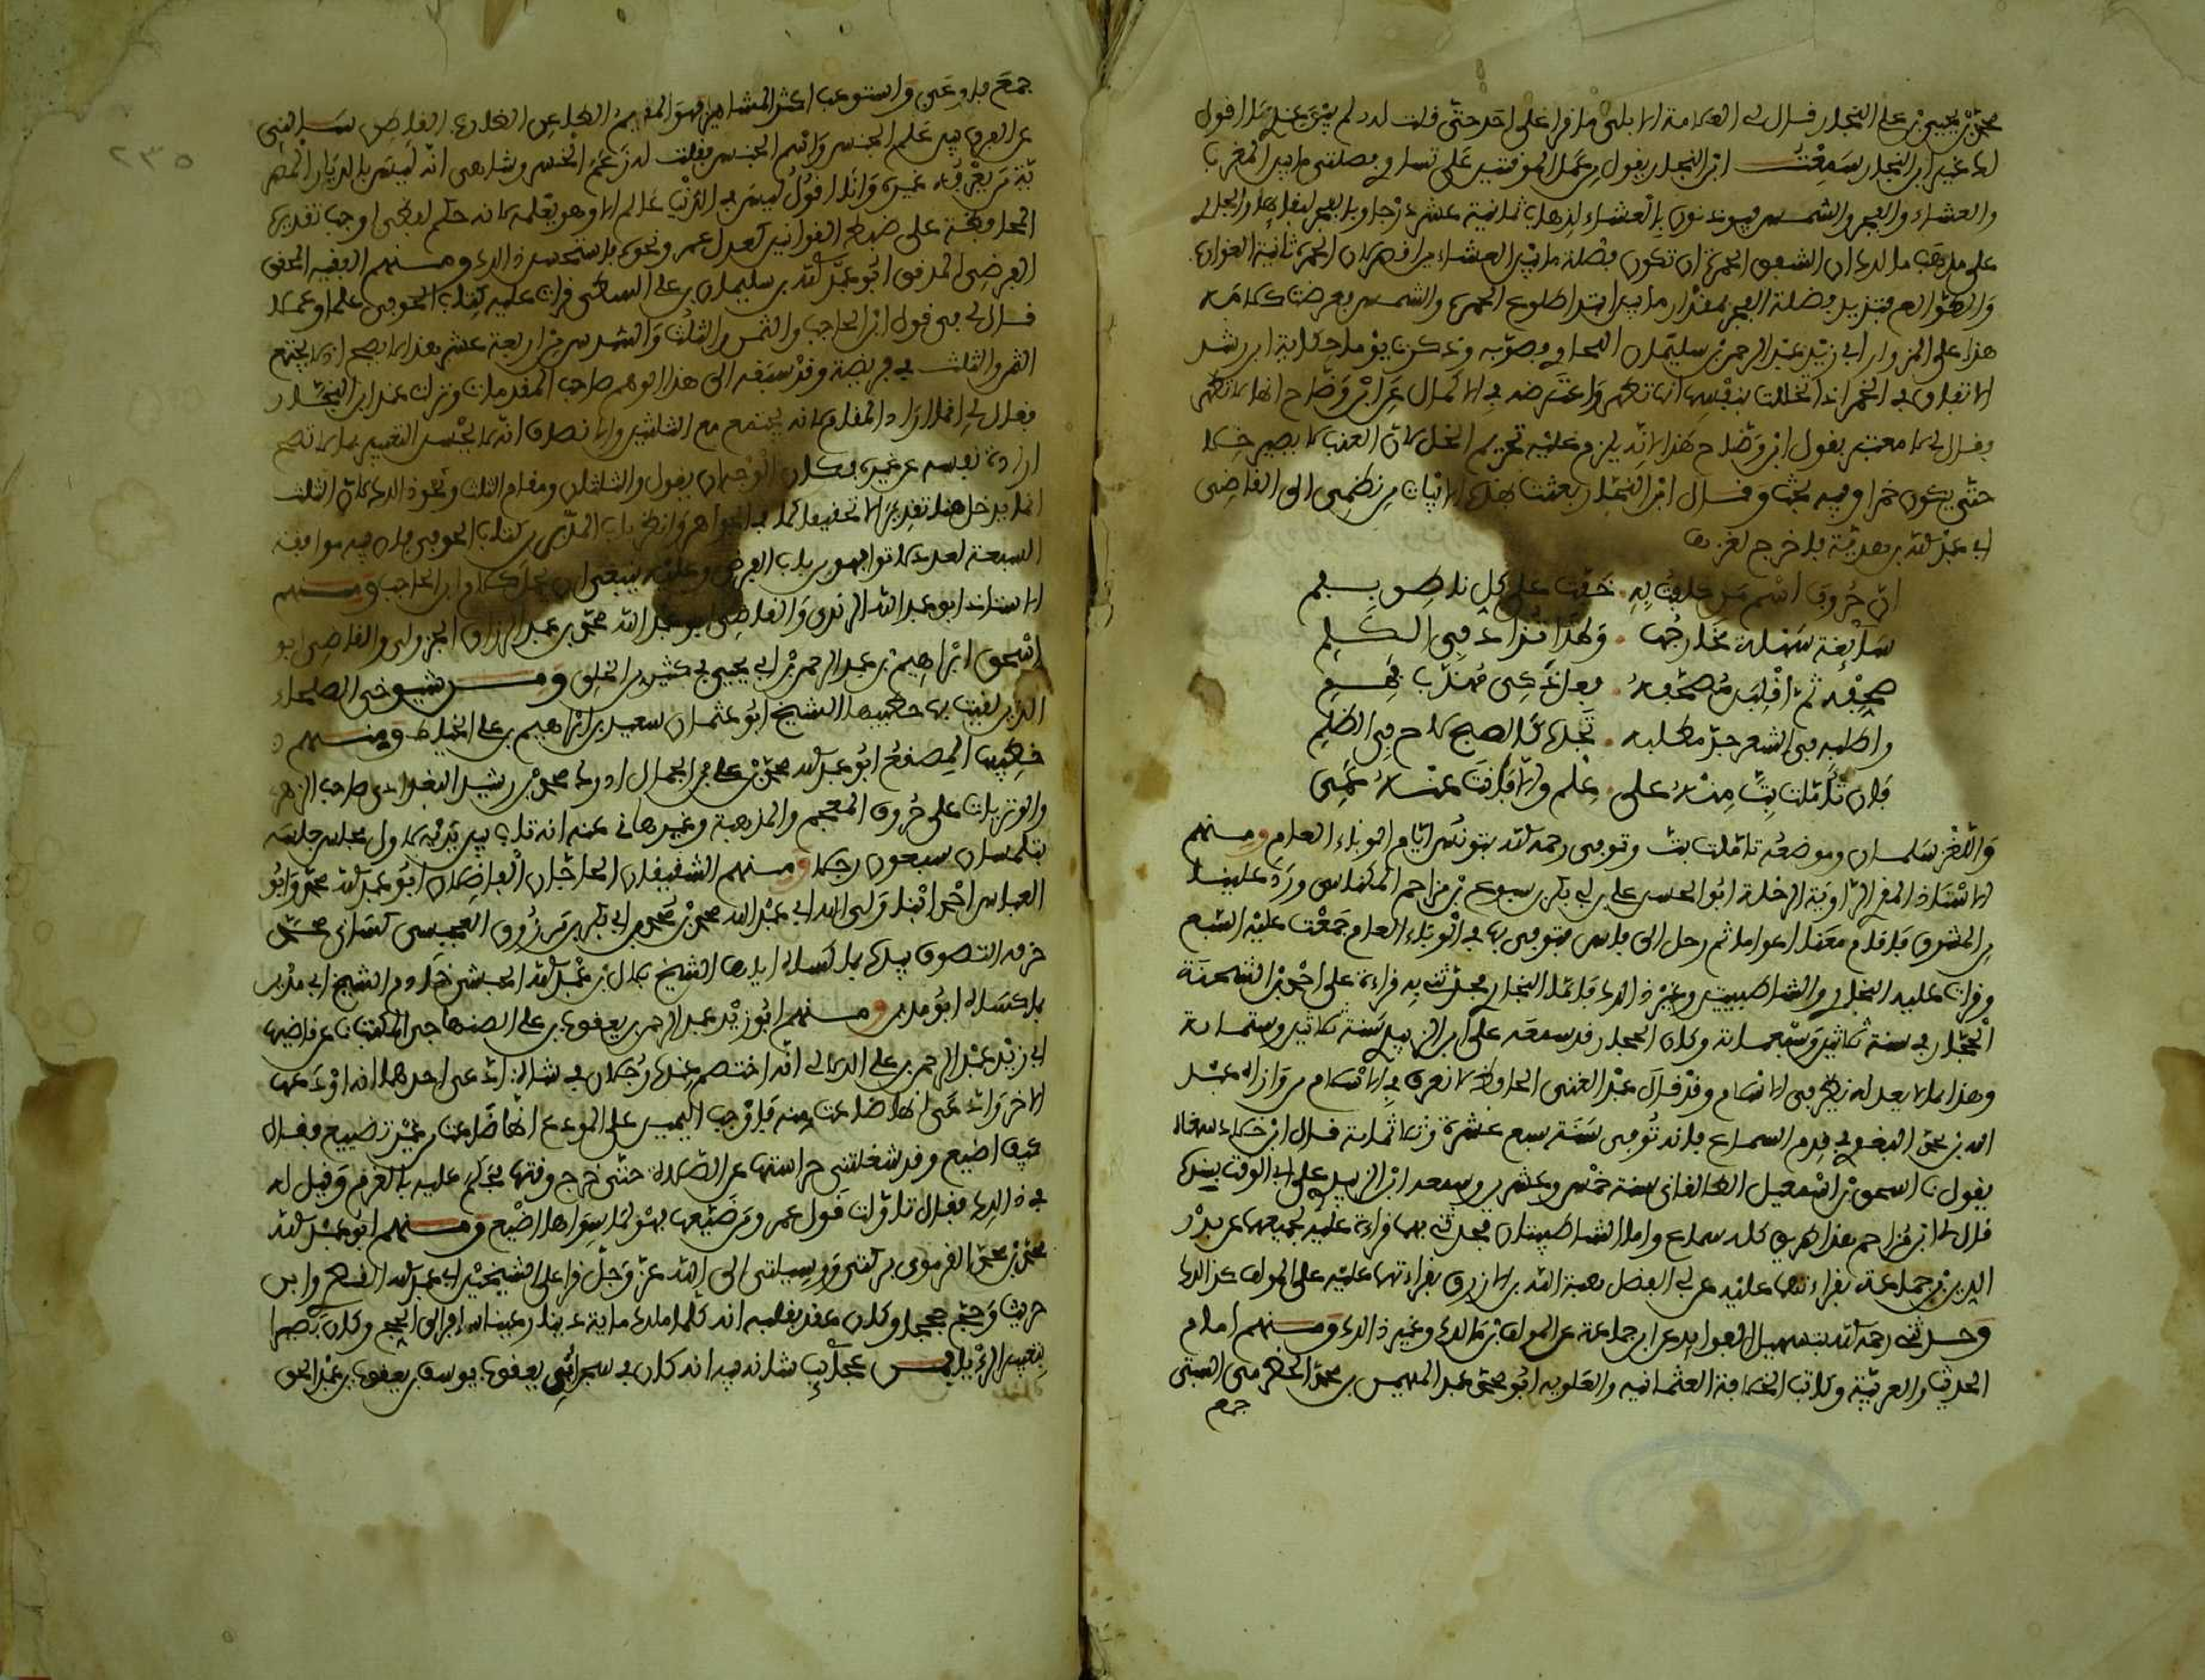 محمد بن يحيى بن علي النجار قال لي العلامة الابلي ما قرا علي احد حتى قلت له لم يبق عندي ما اقول
لك غير ابن النجار سمعت ابن النجار يقول مر عمل الموقتين على تساوي فضلتي ما بين المغرب
والعشاء والفجر والشمس فيوذنون بالعشاء لذهاب ثمانية عشر درجا وبالفجر لبقايها والجاري
على مذهب مالك ان الشفق الحمرة ان تكون فضلة ما بين العشاء من اقصر لان الحمرة ثانية الغوارب
والطوالع فتزيد فضلة الفجر بمقدار ما بين ابتدا طلوع الحمرة والشمس فعرضت كلامه
هذا على المزوار ابي زيد عبد الرحمن بن سليمان اللجاي فصوبه وذكرت يوما حكاية ابن رشد
الاتفاق في الخمر اذا تخللت بنفسها انها تطهر واعترضه في الاكمال عن ابن وضاح انها لا تطهر
فقال لي لا معتبر بقول ابن وضاح هذا لانه يلزم عليه تحريم الخل لان العنب لا يصير خلا
حتى يكون خمرا وفيه بحث وقال ابن النجار بعثت بهذه الابيات من نظمي الى القاضي
ابي عبد الله بن هدية فاخرج لغزها
ان حروف اسم من كلفت به خفت على كل ناطق بفم
سايغة سهلة مخارجها ولهذا تزاد في الكلم
صحفه ثم اقلبن مصحفه فعل ذكي مهذب فهم
واطلبه في الشعر جد مطلبه تجده كالصبح لاح في الظلم
فان تاملت بت منه على علم والا فانت عنه عمي
واللغز سلمان وموضعه تاملت بت وتوفي رحمه الله بتونس ايام الوباء العام ومنهم
الاستاذ المقري الراوية الرحلة ابو الحسن علي بن ابي بكر بن سبوع بن مزاحم المكناسي ورد علينا
من المشرق فاقام معنا اعواما ثم رحل الى فاس فتوفي بها في الوباء العام جمعت عليه السبع
وقرات عليه البخاري والشاطبيتين وغير ذلك فاما البخاري فحدثني به قراءة على احمد بن الشحنة
الحجار سنة ثلاثين وسبعمائة وكان الحجار قد سمعه على ابن الزبيدي سنة ثلاثين وستمائة
وهذا ما لا يعدله نظير في الاسلام وقد قال عبد الغني الحافظ لا نعرف في الاسلام من وازاه عبد
الله بن محمد البغوي في قدم السماع فانه توفي سنة سبع عشرة وثلاثمائة قال ابن خلاد سمعناه
يقول نا اسحق بن اسمعيل الطالقاني سنة خمس وعشرين وسمعه ابن الزبيدي على ابي الوقت بسنده
قال لي ابن مزاحم هذا طريق كله سماع واما الشاطبيتان فحدثني بهما قراءة عليه لجميعهما عن بدر
الدين بن جماعة بقراءتهما عليه عن ابي الفضل هبة الله بن الازرق بقراءتهما عليه على المولف كذلك
وحدثني رحمه الله بتسهيل الفوايد عن ابن جماعة عن المولف بن مالك وغير ذلك ومنهم امام
الحديث والعربية وكاتب الخلافة العثمانية والعلوية ابو محمد عبد المهيمن بن محمد الحضرمي السبتي
جمع
٢٣٥
جمع فاوعى واستوعب اكثر المشاهير فهو المقيم الظاعن الضارب القاطن سالني
عن الفرق بين علم الجنس واسم الجنس فقلت له زعم الخسروشاهي انه ليس بالديار المصرية
من يعرفه غيره وانا اقول ليس في الدنيا عالم الا وهو يعلمه لانه حكم لفظي اوجب تقديره
المحافظة على ضبط القوانين كعدل عمر ونحوه فاستحسن ذلك ومنهم الفقيه المحقق
الفرضي المدقق ابو عبد الله بن سليمان بن علي السطي قرات عليه كتاب الحوفي علما وعملا
قال لي في قول ابن الحاجب والثمن والثلث والسدس من اربعة وعشرين هذا لا يصح اذ لا يجتمع
الثمن والثلث في فريضة وقد سبقه الى هذا الوهم صاحب المقدمات وتزل عند ابن النجار
فقال لي انما اراد المقام لانه يجتمع مع الثلثين والانصاف انه لا يحسن التعبير بما لا تصح
ارادة نفسه عن غيره فكان الوجه ان يقول والثلثان ومقام الثلث ونحو ذلك لان الثلث
انما يدخل هنا تقديرا لا تحقيقا كما في الجواهر وانظر باب المدبر من كتاب الحوفي فان فيه موافقة
السبعة لعدد لا توافقه
الاستاذ ابو عبد الله الرندي والقاضي ابو عبد الله محمد بن عبد الرزاق الجزولي والقاضي ابو
اسحق ابراهيم بن عبد الرحمن بن ابي يحيى في كثير من الخلق ومن شيوخي الصلحاء
الذين لقيت بها خطيبها الشيخ ابو عثمان سعيد بن ابراهيم بن علي الخياط ومنهم
خطيبها المصقع ابو عبد الله محمد بن علي بن الجمال ادرك محمد بن رشيد البغدادي صاحب الزهر
والوتريات على حروف المعجم والمذهبة وغيرها عنه انه تاب بين يديه لاول مجلس جلسه
بتلمسان سبعون رجلا ومنهم الشقيقان الحاجان الفاضلان ابو عبد الله محمد وابو
العباس احمد ابنا ولي الله ابي عبد الله محمد بن محمد بن ابي بكر بن مرزوق العجيسي كساني محمد
خرقة التصوف بيده كما كساه اياها الشيخ بلال بن عبد الله الحبشي خادم الشيخ ابي مدين
كما كساه ابو مدين ومنهم ابو زيد عبد الرحمن بن يعقوب بن علي الصنهاجي المكتب نا عن قاضيها
ابي زيد عبد الرحمن بن علي الدكالي انه اختصم عنده رجلان في شاة ادعى احدهما انه اودعها
الاخر وادعى انها ضاعت منه فاوجب اليمين على المودع انها ضاعت من غير تضييع فقال
كيف اضيع وقد شغلتني حراستها عن الصلاة حتى خرج وقتها فحكم عليه بالغرم وقيل له
في ذلك فقال تاولت قول عمر ومن ضيعها فهو لما سواها اضيع ومنهم ابو عبد الله
محمد بن محمد القرموني بركتي ووسيلتي الى الله عز وجل قرا على الشيخين ابي عبد الله القصار وابن
حريث وحج حججا وكان عقد بقلبه انه كلما ملك ماية دينار عينا سافر الى الحج وكان بصيرا
بتعبير الرؤيا فمن عجائب شانه فيه انه كان في سجن ابي يعقوب يوسف بن يعقوب بن عبد الحق